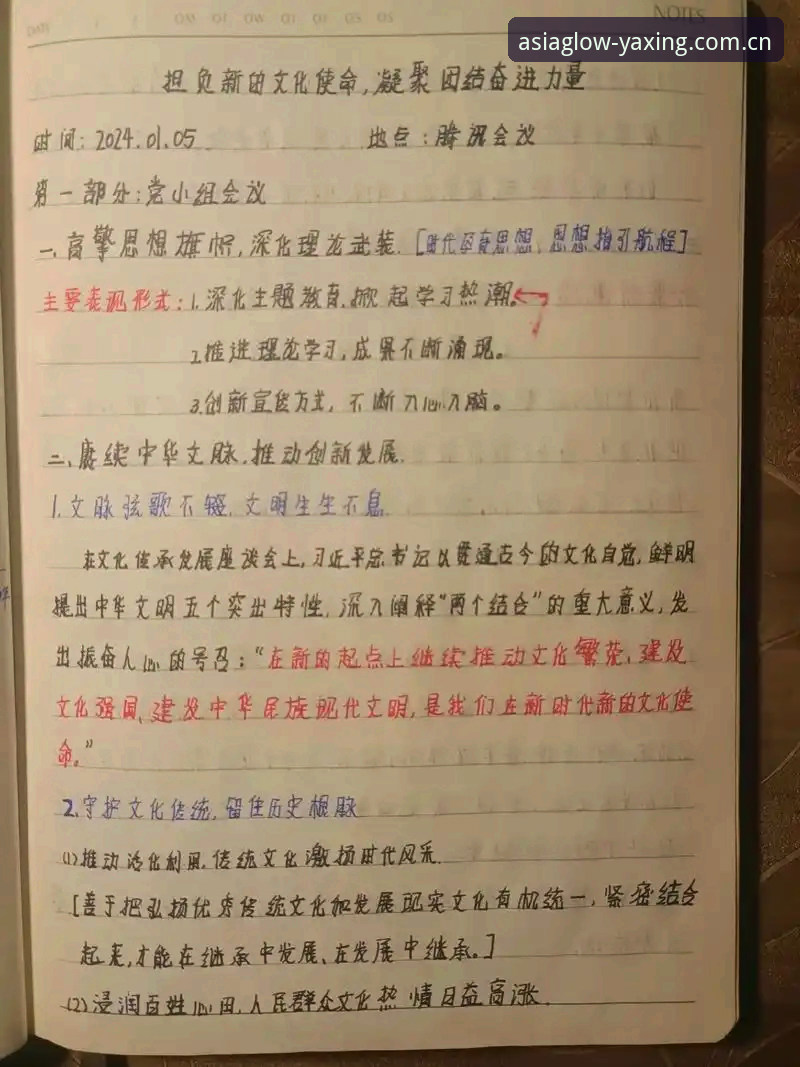 NOTES
asiaglow-yaxing.com.cn
担负新的文化使命,凝聚团结奋进力量
时间:2024.01.05 地点:腾讯会议
第一部分:党小组会议
一、高擎思想旗帜,深化理论武装.[时代孕育思想,思想指引航程]
主要表现形式:1.深化主题教育.掀起学习热潮.
2.推进理论学习,成果不断涌现。
3.创新宣传方式,不断入心入脑。
二、赓续中华文脉.推动创新发展.
1.文脉弦歌不辍.文明生生不息
在文化传承发展座谈会上,习近平总书记以贯通古今的文化自觉,鲜明
提出中华文明五个突出特性,深入阐释“两个结合”的重大意义,发
出振奋人心的号召:“在新的起点上继续推动文化繁荣、建设
文化强国、建设中华民族现代文明,是我们在新时代新的文化使
命。”
2.守护文化传统,留住历史根脉
(1)推动活化利用.传统文化激扬时代风采.
[善于把弘扬优秀传统文化和发展现实文化有机统一,紧密结合
起来,才能在继承中发展、在发展中继承。]
(2)浸润百姓心田,人民群众文化热情日益高涨.